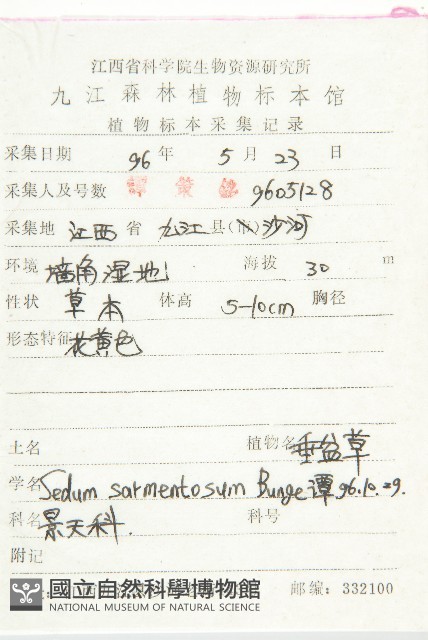 江西省科学院生物资源研究所
九江森林植物标本馆
植物标本采集记录
采集日期 96 年 5 月 23 日
采集人及号数 譚 策 9605128
采集地 江西 省 九江 县(市) 沙河
环境 墙角湿地 海拔 30 m
性状 草本 体高 5-10cm 胸径
形态特征 花黄色
土名 植物名 垂盆草
学名 Sedum sarmentosum Bunge 谭 96.10.29.
科名 景天科. 科号
附记
邮编: 332100
國立自然科學博物館
NATIONAL MUSEUM OF NATURAL SCIENCE